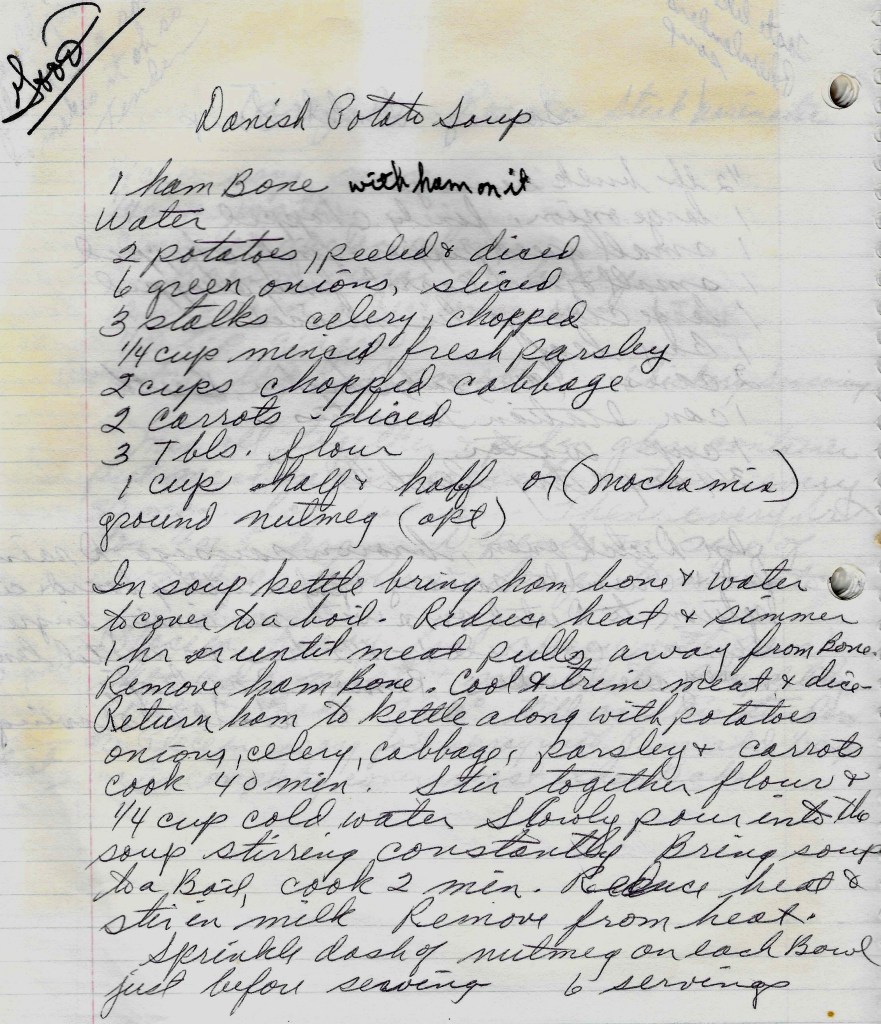 Good
Danish Potato Soup
1 ham Bone with ham on it
Water
2 potatoes, peeled & diced
6 green onions, sliced
3 stalks celery, chopped
1/4 cup minced fresh parsley
2 cups chopped cabbage
2 carrots - diced
3 Tbls. flour
1 cup half & half or (mocha mix)
ground nutmeg (opt)
In soup kettle bring ham bone & water
to cover to a boil. Reduce heat & simmer
1 hr or until meat pulls away from Bone.
Remove ham Bone. Cool & trim meat & dice
Return ham to kettle along with potatoes
onions, celery, cabbage, parsley & carrots
cook 40 min. Stir together flour &
1/4 cup cold water Slowly pour into the
soup stirring constantly Bring soup
to a Boil, cook 2 min. Reduce heat &
stir in milk Remove from heat.
Sprinkle dash of nutmeg on each Bowl
just before serving 6 servings